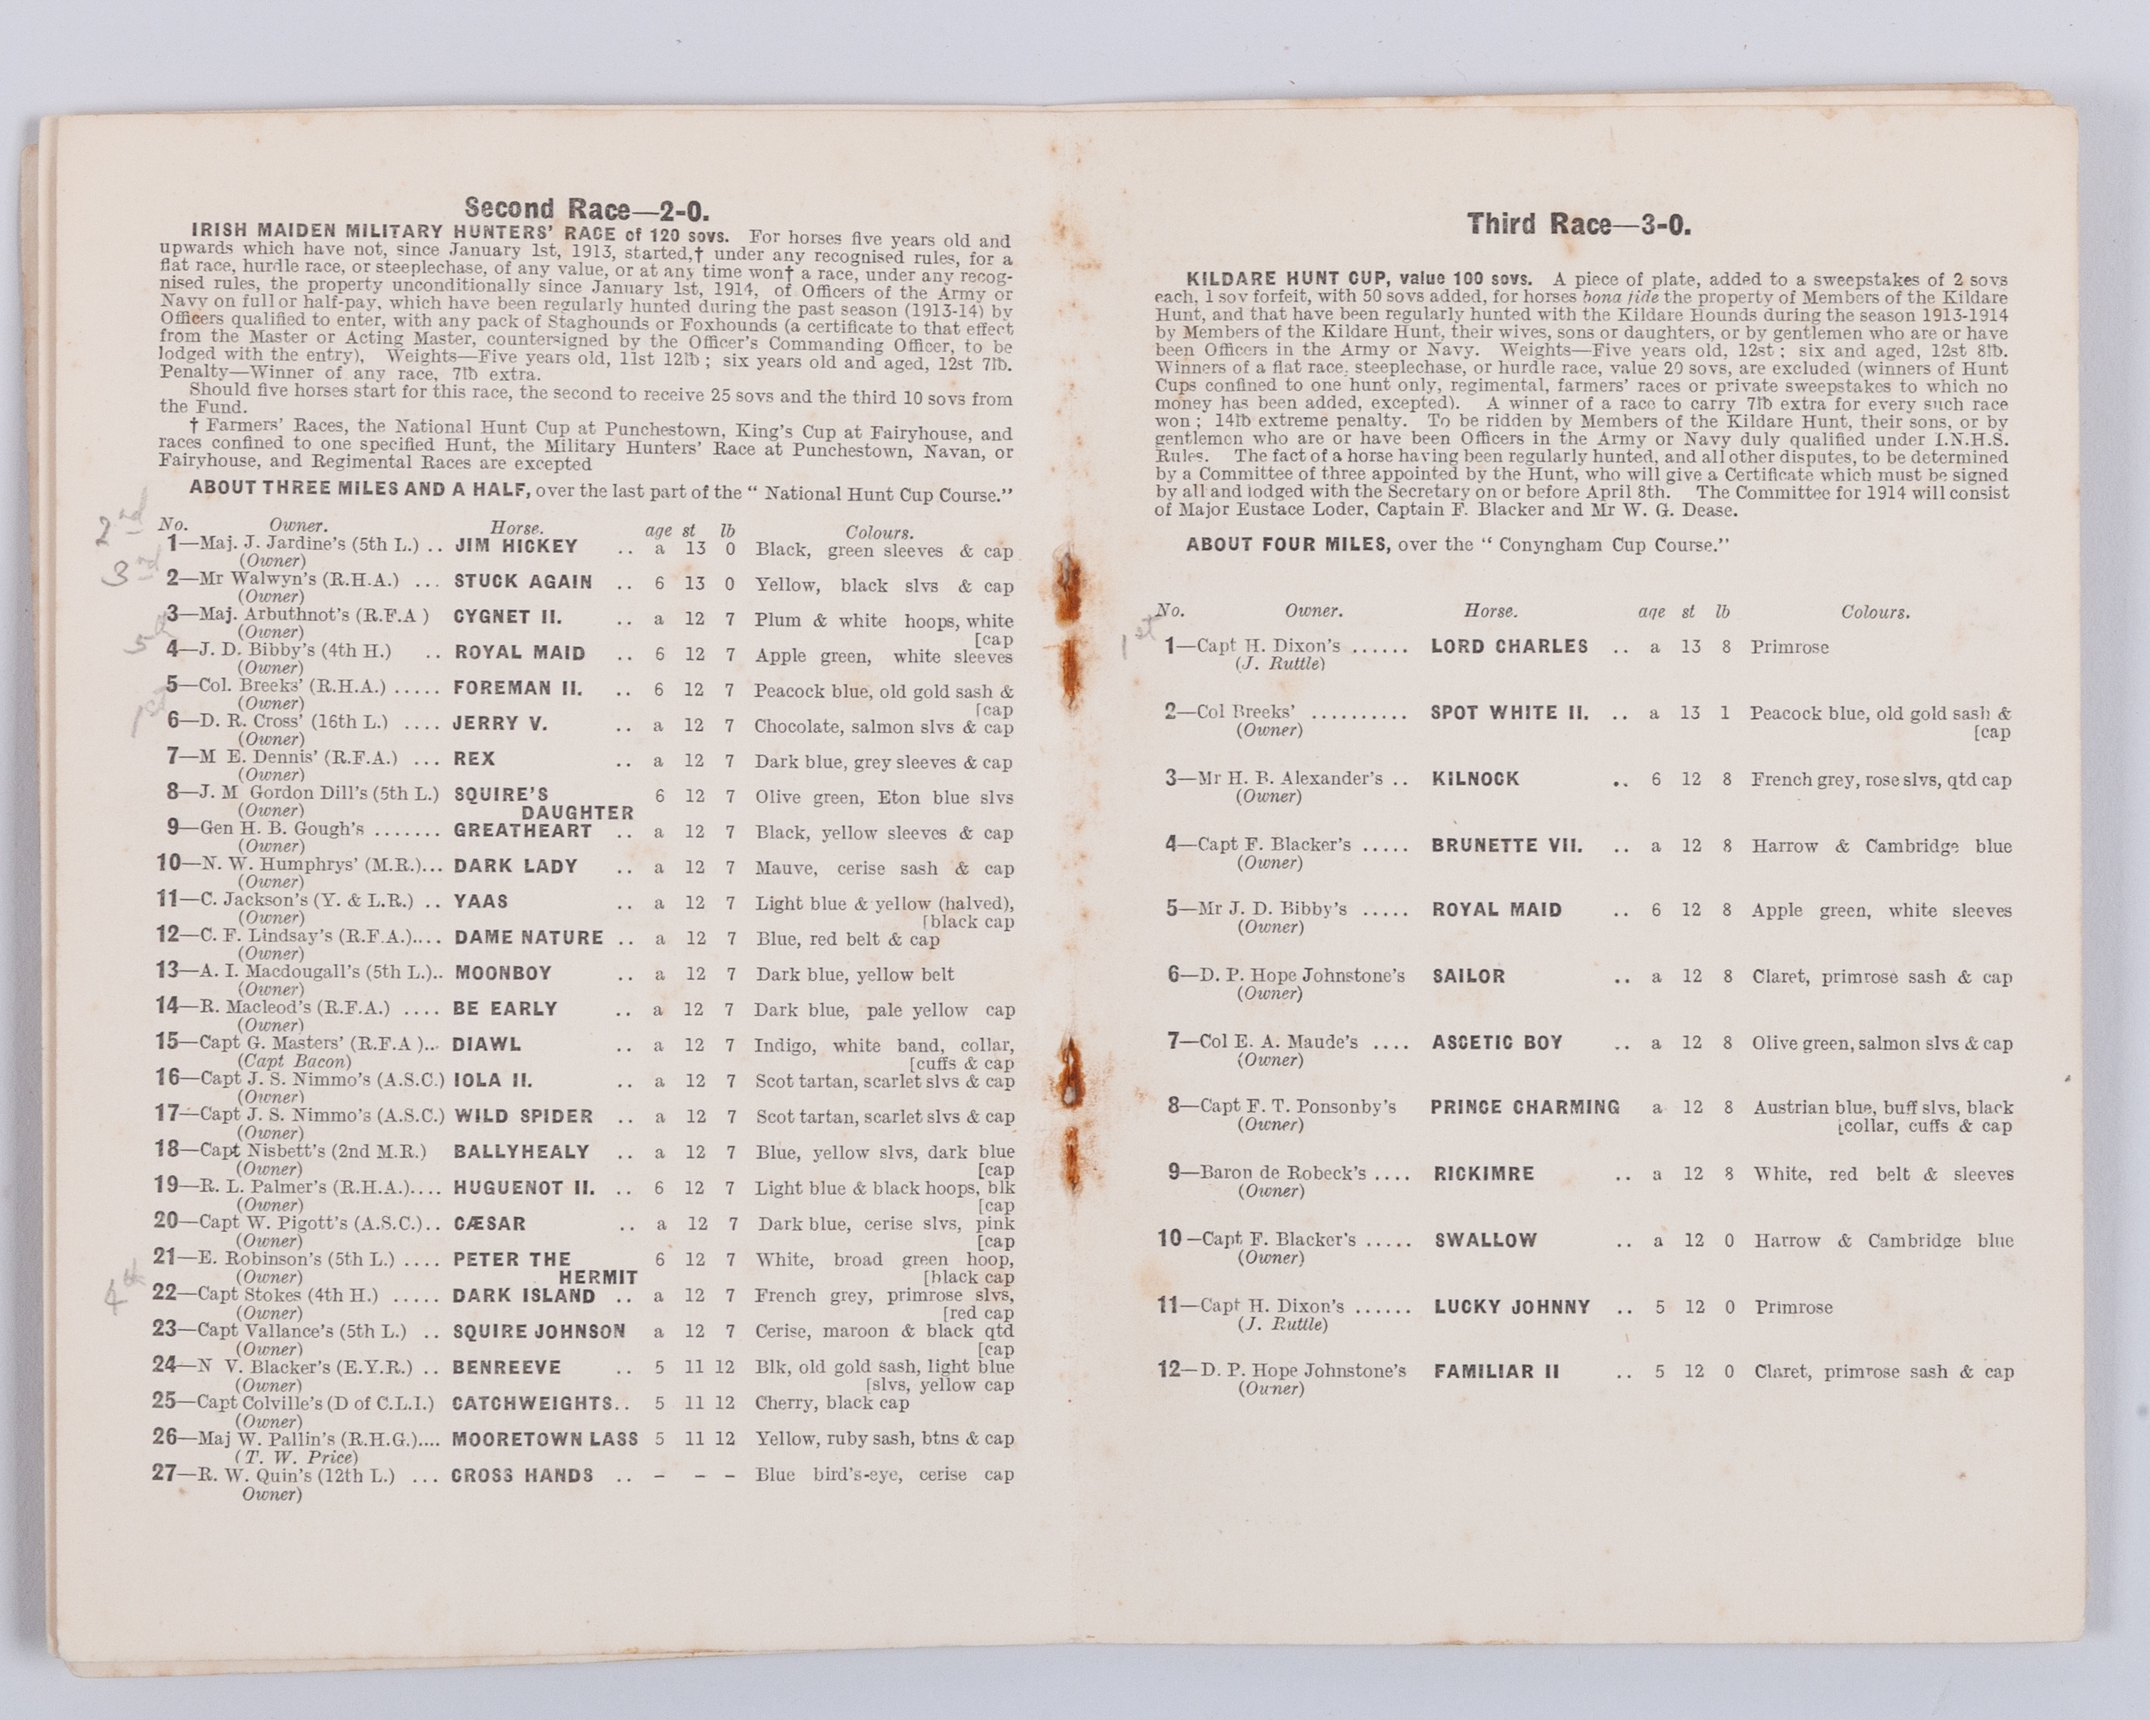 Second Race—2-0.
IRISH MAIDEN MILITARY HUNTERS' RACE of 120 sovs. For horses five years old and
upwards which have not, since January 1st, 1913, started,† under any recognised rules, for a
flat race, hurdle race, or steeplechase, of any value, or at any time won† a race, under any recog-
nised rules, the property unconditionally since January 1st, 1914, of Officers of the Army or
Navy on full or half-pay, which have been regularly hunted during the past season (1913-14) by
Officers qualified to enter, with any pack of Staghounds or Foxhounds (a certificate to that effect
from the Master or Acting Master, countersigned by the Officer's Commanding Officer, to be
lodged with the entry), Weights—Five years old, 11st 12lb; six years old and aged, 12st 7lb.
Penalty—Winner of any race, 7lb extra.
Should five horses start for this race, the second to receive 25 sovs and the third 10 sovs from
the Fund.
† Farmers' Races, the National Hunt Cup at Punchestown, King's Cup at Fairyhouse, and
races confined to one specified Hunt, the Military Hunters' Race at Punchestown, Navan, or
Fairyhouse, and Regimental Races are excepted
ABOUT THREE MILES AND A HALF, over the last part of the " National Hunt Cup Course."
No. Owner. Horse. age st lb Colours.
2nd 1—Maj. J. Jardine's (5th L.) .. JIM HICKEY .. a 13 0 Black, green sleeves & cap
(Owner)
3rd 2—Mr Walwyn's (R.H.A.) ... STUCK AGAIN .. 6 13 0 Yellow, black slvs & cap
(Owner)
3—Maj. Arbuthnot's (R.F.A ) CYGNET II. .. a 12 7 Plum & white hoops, white
(Owner) [cap
5th 4—J. D. Bibby's (4th H.) .. ROYAL MAID .. 6 12 7 Apple green, white sleeves
(Owner)
5—Col. Breeks' (R.H.A.) ..... FOREMAN II. .. 6 12 7 Peacock blue, old gold sash &
(Owner) [cap
1st 6—D. R. Cross' (16th L.) .... JERRY V. .. a 12 7 Chocolate, salmon slvs & cap
(Owner)
7—M E. Dennis' (R.F.A.) ... REX .. a 12 7 Dark blue, grey sleeves & cap
(Owner)
8—J. M Gordon Dill's (5th L.) SQUIRE'S 6 12 7 Olive green, Eton blue slvs
(Owner) DAUGHTER
9—Gen H. B. Gough's ....... GREATHEART .. a 12 7 Black, yellow sleeves & cap
(Owner)
10—N. W. Humphrys' (M.R.)... DARK LADY .. a 12 7 Mauve, cerise sash & cap
(Owner)
11—C. Jackson's (Y. & L.R.) .. YAAS .. a 12 7 Light blue & yellow (halved),
(Owner) [black cap
12—C. F. Lindsay's (R.F.A.).... DAME NATURE .. a 12 7 Blue, red belt & cap
(Owner)
13—A. I. Macdougall's (5th L.).. MOONBOY .. a 12 7 Dark blue, yellow belt
(Owner)
14—R. Macleod's (R.F.A.) .... BE EARLY .. a 12 7 Dark blue, pale yellow cap
(Owner)
15—Capt G. Masters' (R.F.A )... DIAWL .. a 12 7 Indigo, white band, collar,
(Capt Bacon) [cuffs & cap
16—Capt J. S. Nimmo's (A.S.C.) IOLA II. .. a 12 7 Scot tartan, scarlet slvs & cap
(Owner)
17—Capt J. S. Nimmo's (A.S.C.) WILD SPIDER .. a 12 7 Scot tartan, scarlet slvs & cap
(Owner)
18—Capt Nisbett's (2nd M.R.) BALLYHEALY .. a 12 7 Blue, yellow slvs, dark blue
(Owner) [cap
19—R. L. Palmer's (R.H.A.).... HUGUENOT II. .. 6 12 7 Light blue & black hoops, blk
(Owner) [cap
20—Capt W. Pigott's (A.S.C.).. CÆSAR .. a 12 7 Dark blue, cerise slvs, pink
(Owner) [cap
21—E. Robinson's (5th L.) .... PETER THE 6 12 7 White, broad green hoop,
(Owner) HERMIT [black cap
4th 22—Capt Stokes (4th H.) ..... DARK ISLAND .. a 12 7 French grey, primrose slvs,
(Owner) [red cap
23—Capt Vallance's (5th L.) .. SQUIRE JOHNSON a 12 7 Cerise, maroon & black qtd
(Owner) [cap
24—N V. Blacker's (E.Y.R.) .. BENREEVE .. 5 11 12 Blk, old gold sash, light blue
(Owner) [slvs, yellow cap
25—Capt Colville's (D of C.L.I.) CATCHWEIGHTS.. 5 11 12 Cherry, black cap
(Owner)
26—Maj W. Pallin's (R.H.G.).... MOORETOWN LASS 5 11 12 Yellow, ruby sash, btns & cap
(T. W. Price)
27—R. W. Quin's (12th L.) ... CROSS HANDS .. – – – Blue bird's-eye, cerise cap
Owner)
Third Race—3-0.
KILDARE HUNT CUP, value 100 sovs. A piece of plate, added to a sweepstakes of 2 sovs
each, 1 sov forfeit, with 50 sovs added, for horses bona fide the property of Members of the Kildare
Hunt, and that have been regularly hunted with the Kildare Hounds during the season 1913-1914
by Members of the Kildare Hunt, their wives, sons or daughters, or by gentlemen who are or have
been Officers in the Army or Navy. Weights—Five years old, 12st; six and aged, 12st 8lb.
Winners of a flat race, steeplechase, or hurdle race, value 20 sovs, are excluded (winners of Hunt
Cups confined to one hunt only, regimental, farmers' races or private sweepstakes to which no
money has been added, excepted). A winner of a race to carry 7lb extra for every such race
won; 14lb extreme penalty. To be ridden by Members of the Kildare Hunt, their sons, or by
gentlemen who are or have been Officers in the Army or Navy duly qualified under I.N.H.S.
Rules. The fact of a horse having been regularly hunted, and all other disputes, to be determined
by a Committee of three appointed by the Hunt, who will give a Certificate which must be signed
by all and lodged with the Secretary on or before April 8th. The Committee for 1914 will consist
of Major Eustace Loder, Captain F. Blacker and Mr W. G. Dease.
ABOUT FOUR MILES, over the " Conyngham Cup Course."
No. Owner. Horse. age st lb Colours.
1st 1—Capt H. Dixon's ...... LORD CHARLES .. a 13 8 Primrose
(J. Ruttle)
2—Col Breeks' .......... SPOT WHITE II. .. a 13 1 Peacock blue, old gold sash &
(Owner) [cap
3—Mr H. B. Alexander's .. KILNOCK .. 6 12 8 French grey, rose slvs, qtd cap
(Owner)
4—Capt F. Blacker's ..... BRUNETTE VII. .. a 12 8 Harrow & Cambridge blue
(Owner)
5—Mr J. D. Bibby's ..... ROYAL MAID .. 6 12 8 Apple green, white sleeves
(Owner)
6—D. P. Hope Johnstone's SAILOR .. a 12 8 Claret, primrose sash & cap
(Owner)
7—Col E. A. Maude's .... ASCETIC BOY .. a 12 8 Olive green, salmon slvs & cap
(Owner)
8—Capt F. T. Ponsonby's PRINCE CHARMING a 12 8 Austrian blue, buff slvs, black
(Owner) [collar, cuffs & cap
9—Baron de Robeck's .... RICKIMRE .. a 12 8 White, red belt & sleeves
(Owner)
10—Capt F. Blacker's ..... SWALLOW .. a 12 0 Harrow & Cambridge blue
(Owner)
11—Capt H. Dixon's ...... LUCKY JOHNNY .. 5 12 0 Primrose
(J. Ruttle)
12—D. P. Hope Johnstone's FAMILIAR II .. 5 12 0 Claret, primrose sash & cap
(Owner)